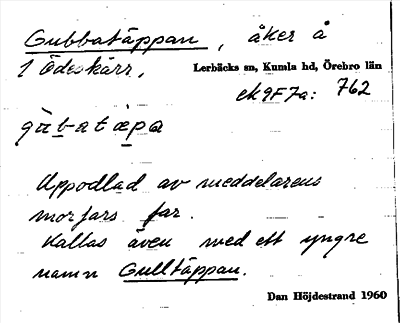 Gubbatäppan, åker å
1 Ödeskärr.
Lerbäcks sn, Kumla hd, Örebro län
ek9F7a: 762
gùbatæpa
Uppodlad av meddelarens
morfars far.
Kallas även med ett yngre
namn Gulltäppan.
Dan Höjdestrand 1960